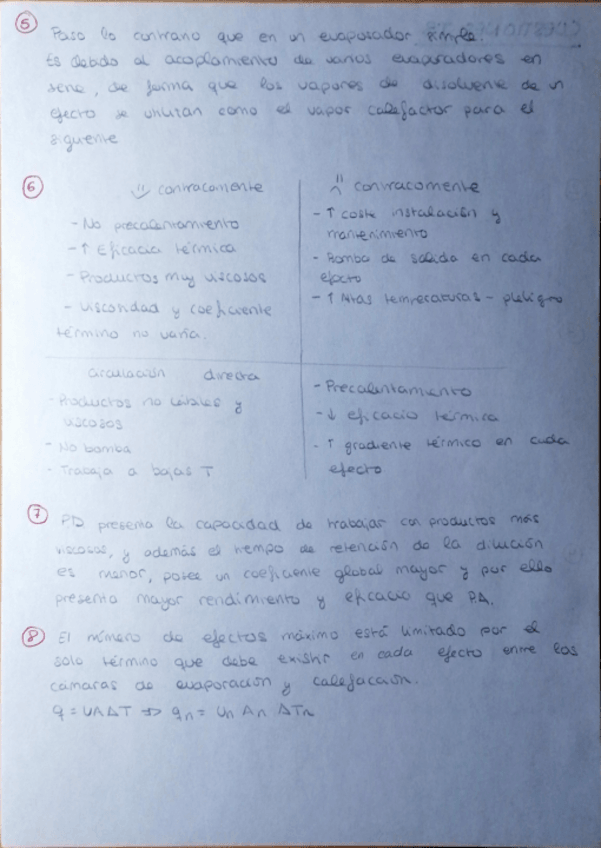 5 Pasa lo contrario que en un evaporador simple.
Es debido al acoplamiento de varios evaporadores en
serie, de forma que los vapores de disolvente de un
efecto se utilizan como el vapor calefactor para el
siguiente
6
contracorriente
- No precalentamiento
- ↑ Eficacia térmica
- Productos muy viscosos
- Viscosidad y coeficiente
término no varía.
contracorriente
- ↑ coste instalación y
mantenimiento
- Bomba de salida en cada
efecto
- ↑ Altas temperaturas - peligro
circulación directa
- Productos no lábiles y
viscosos
- No bomba
- Trabaja a bajas T
- Precalentamiento
- ↓ eficacia térmica
- ↑ gradiente térmico en cada
efecto
7 PD presenta la capacidad de trabajar con productos más
viscosos, y además el tiempo de retención de la dilución
es menor, posee un coeficiente global mayor y por ello
presenta mayor rendimiento y eficacia que P.A.
8 El número de efectos máximo está limitado por el
salto término que debe existir en cada efecto entre las
cámaras de evaporación y calefacción.
q = UAΔT ⇒ qn = Un An ΔTn